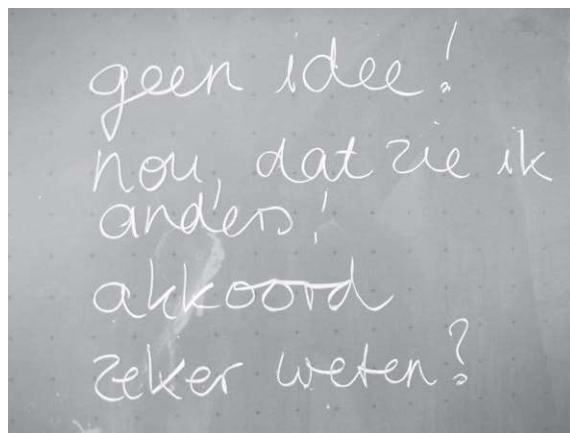 geen idee!
nou, dat zie ik
anders!
akkoord
zeker weten?